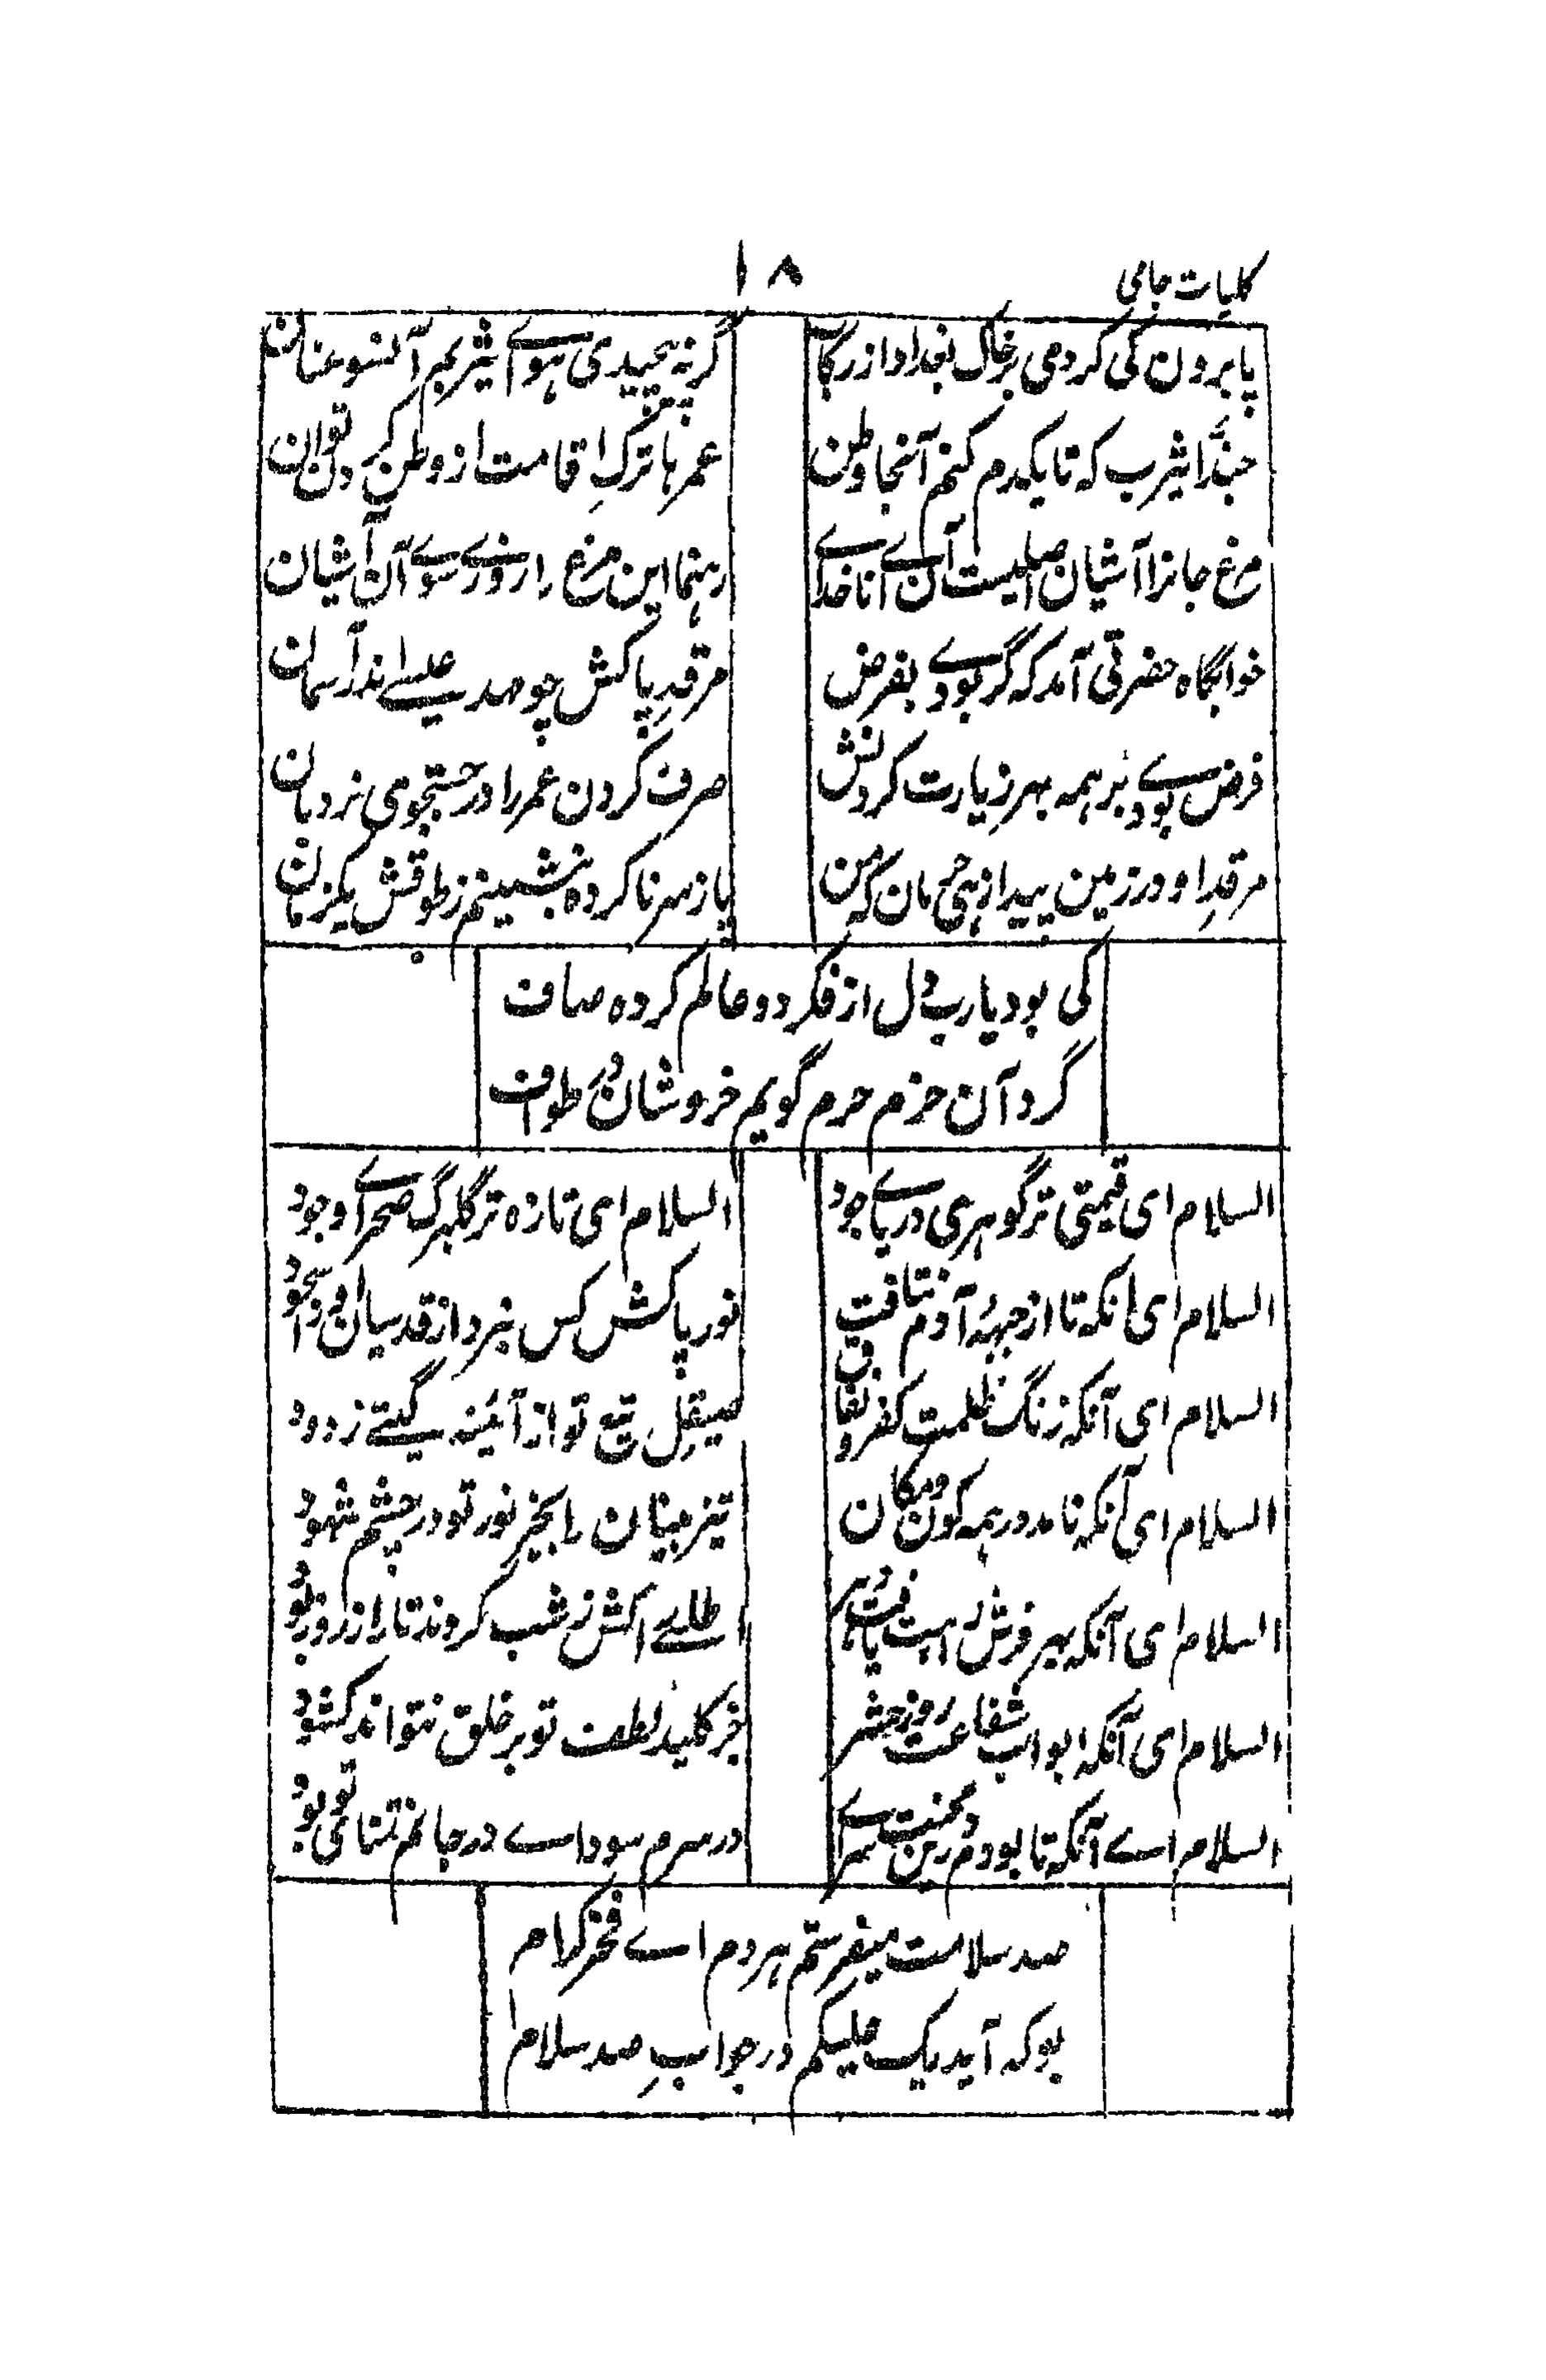 کلیات جامی
۱۸
پا برون کی کردمی بر خاک بغداد از رکاب
گرنه پیچیدی هوای یثربم آنسو عنان
حبذا یثرب که تا یکدم کنم آنجا وطن
عمرها ترکِ اقامت از وطن کردن توان
مرغ جانرا آشیان اصلیست آن اے ناخدا
رهنما این مرغ را روزے سوے آن آشیان
خوابگاه حضرتی آمد که گر بودے بفرض
مرقدِ پاکش چو مهد عیسے اندر آسمان
فرض بودے بر همه بهرِ زیارت کردنش
صرف کردن عمر را در جستجوی نردبان
مرقدِ او در زمین پیدا زهی حرمان که من
پا ز سر ناکرده بنشینم ز طوفش یکزمان
کی بود یارب دل از فکر دو عالم کرده صاف
گرد آن حرم حرم گویم خروشان در طواف
السلام ای قیمتی تر گوهری دریاے جود
السلام ای تازه تر گلبرگ صحراے وجود
السلام ای آنکه تا از جبههٔ آدم نتافت
نور پاکش کس نبرد از قدسیان او را سجود
السلام ای آنکه زنگ ظلمت کفر و نفاق
صیقلِ تیغ تو از آئینه گیتے زدود
السلام ای آنکه نامد در همه کون و مکان
تیز بینان را بجز نور تو در چشم شهود
السلام ای آنکه بهر فرش
اطلسے اکش ز شب کردند تار از روز پود
السلام ای آنکه ابواب شفاعت روز حشر
جز کلید لطف تو بر خلق نتواند کشود
السلام اے آنکه تا بودم درین محنت سراے
در سرم سوداے در جانم تمنای تو بود
صد سلامت میفرستم هر دم اے فخر کرام
بو که آید یک علیکم در جوابِ صد سلام